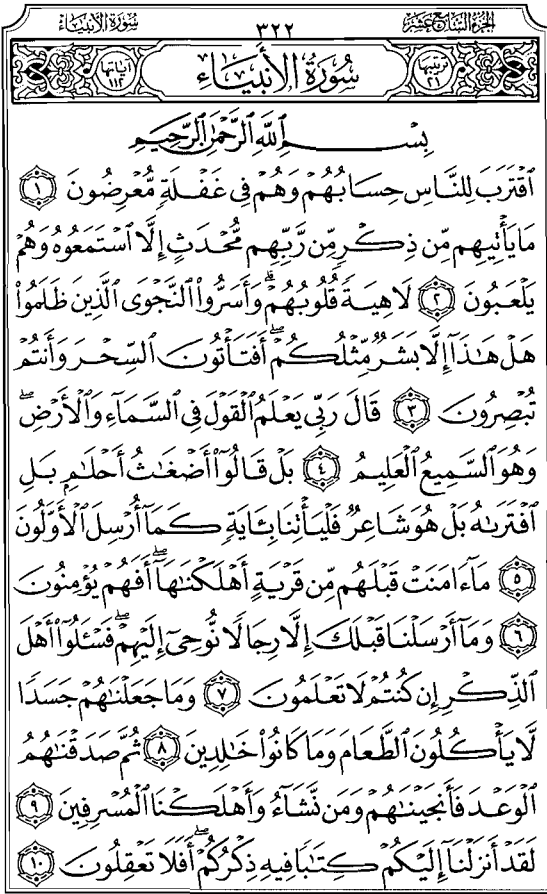 الجزء السابع عشر ٣٢٢ سورة الأنبياء
ترتيبها ٢١ سُورَةُ الأَنبِيَاءِ آياتها ١١٢
بِسْمِ اللَّهِ الرَّحْمَٰنِ الرَّحِيمِ
ٱقْتَرَبَ لِلنَّاسِ حِسَابُهُمْ وَهُمْ فِى غَفْلَةٍ مُّعْرِضُونَ ١
مَا يَأْتِيهِم مِّن ذِكْرٍ مِّن رَّبِّهِم مُّحْدَثٍ إِلَّا ٱسْتَمَعُوهُ وَهُمْ
يَلْعَبُونَ ٢ لَاهِيَةً قُلُوبُهُمْ ۗ وَأَسَرُّوا۟ ٱلنَّجْوَى ٱلَّذِينَ ظَلَمُوا۟
هَلْ هَٰذَآ إِلَّا بَشَرٌ مِّثْلُكُمْ ۖ أَفَتَأْتُونَ ٱلسِّحْرَ وَأَنتُمْ
تُبْصِرُونَ ٣ قَالَ رَبِّى يَعْلَمُ ٱلْقَوْلَ فِى ٱلسَّمَآءِ وَٱلْأَرْضِ ۖ
وَهُوَ ٱلسَّمِيعُ ٱلْعَلِيمُ ٤ بَلْ قَالُوٓا۟ أَضْغَٰثُ أَحْلَٰمٍۭ بَلِ
ٱفْتَرَىٰهُ بَلْ هُوَ شَاعِرٌ فَلْيَأْتِنَا بِـَٔايَةٍ كَمَآ أُرْسِلَ ٱلْأَوَّلُونَ
٥ مَآ ءَامَنَتْ قَبْلَهُم مِّن قَرْيَةٍ أَهْلَكْنَٰهَآ ۖ أَفَهُمْ يُؤْمِنُونَ
٦ وَمَآ أَرْسَلْنَا قَبْلَكَ إِلَّا رِجَالًا نُّوحِىٓ إِلَيْهِمْ ۖ فَسْـَٔلُوٓا۟ أَهْلَ
ٱلذِّكْرِ إِن كُنتُمْ لَا تَعْلَمُونَ ٧ وَمَا جَعَلْنَٰهُمْ جَسَدًا
لَّا يَأْكُلُونَ ٱلطَّعَامَ وَمَا كَانُوا۟ خَٰلِدِينَ ٨ ثُمَّ صَدَقْنَٰهُمُ
ٱلْوَعْدَ فَأَنجَيْنَٰهُمْ وَمَن نَّشَآءُ وَأَهْلَكْنَا ٱلْمُسْرِفِينَ ٩
لَقَدْ أَنزَلْنَآ إِلَيْكُمْ كِتَٰبًا فِيهِ ذِكْرُكُمْ ۖ أَفَلَا تَعْقِلُونَ ١٠